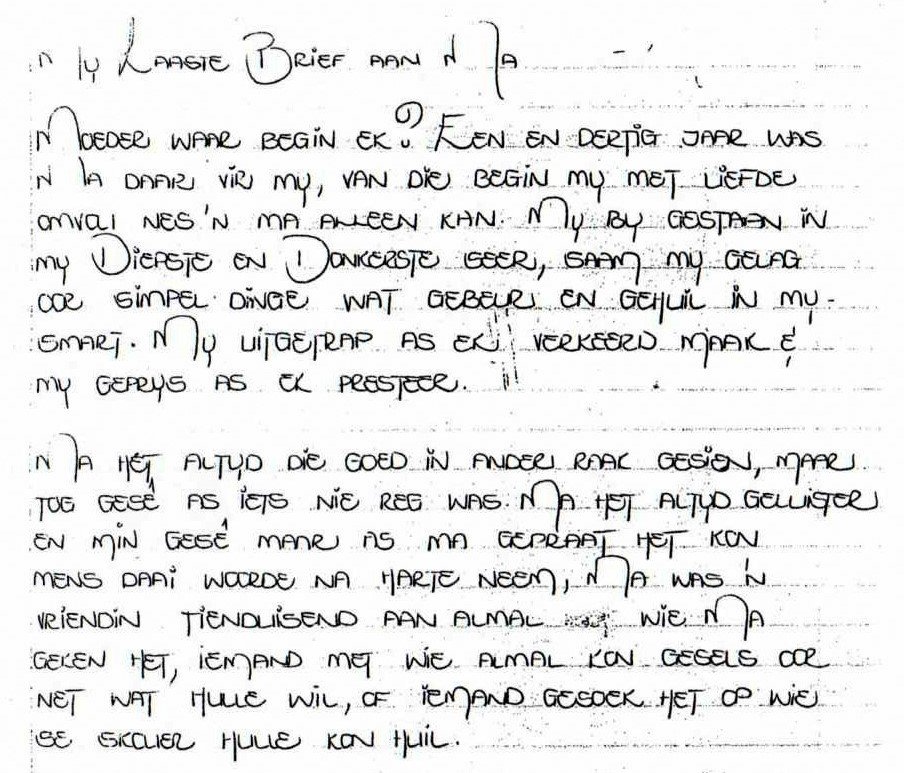 My Laaste Brief aan Ma
Moeder waar begin ek? Een en dertig jaar was
Ma daar vir my, van die begin my met liefde
omvou nes 'n ma alleen kan. My by gestaan in
my Diepste en Donkerste seer, saam my gelag
oor simpel dinge wat gebeur en gehuil in my
smart. My uitgetrap as ek verkeerd maak &
my geprys as ek presteer.
Ma het altyd die goed in ander raak gesien, maar
tog gesê as iets nie reg was. Ma het altyd geluister
en min gesê maar as ma gepraat het kon
mens daai woorde na harte neem, Ma was 'n
vriendin tienduisend aan almal wie Ma
geken het, iemand met wie almal kon gesels oor
net wat hulle wil, of iemand gesoek het op wie
se skouer hulle kon huil.